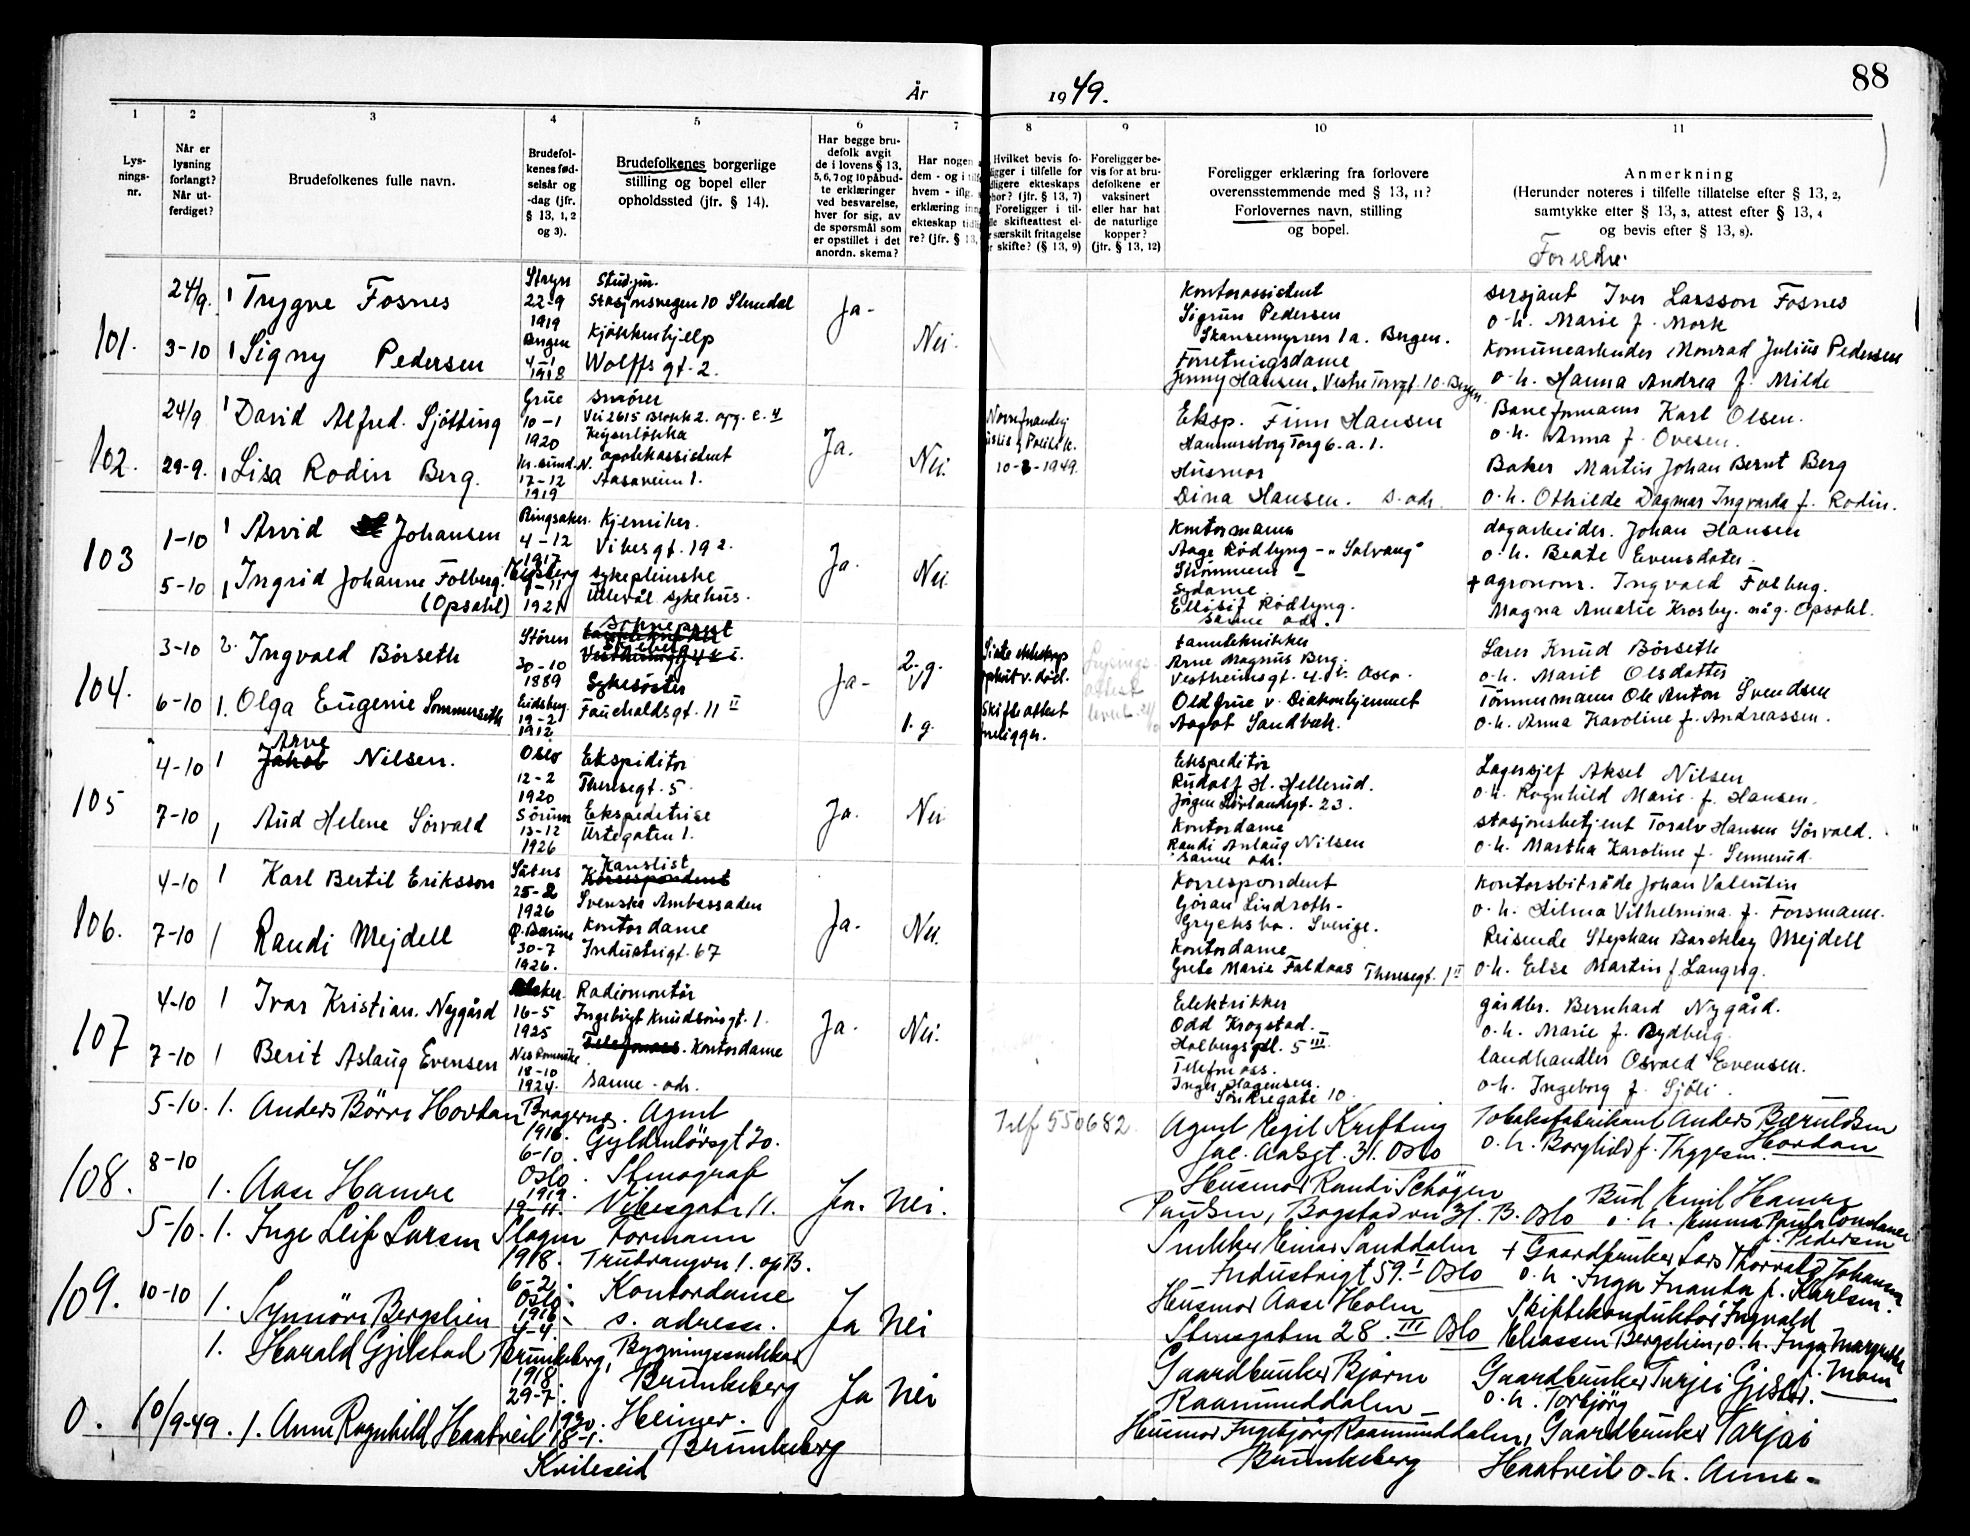 88
År 1949.
1
2
3
4
5
6
7
8
9
10
11
Lys-
nings-
nr.
Når er
lysning
forlangt?
Når ut-
ferdiget?
Brudefolkenes fulle navn.
Brudefol-
kenes fød-
selsår og
-dag (jfr.
§ 13, 1, 2
og 3).
Brudefolkenes borgerlige
stilling og bopel eller
opholdssted (jfr. § 14).
Har begge bru-
defolk avgit
de i lovens § 13,
5, 6, 7 og 10 påbud-
te erklæringer
ved besvarelse,
hver for sig, av
de spørsmål som
er opstillet i det
anordn. skema?
Har nogen
dem - og i
hvem - iflg.
erklæring
ekteskap
re? (jfr. § 13,
Hvilket bevis fo-
ligger i tilfelle for
ekteskaps
(jfr. § 13, 7)
Foreligger i til-
skifteattest el-
særskilt fritagelse
skifte? (§ 13, 9)
Foreligger be-
vis for at bru-
defolkene er
vaksinert
eller har hat
de naturlige
kopper?
(jfr. § 13, 12)
Foreligger erklæring fra forlovere
overensstemmende med § 13, 11?
Forlovernes navn, stilling
og bopel.
Anmerkning
(Herunder noteres i tilfelle tillatelse efter § 13, 2,
samtykke efter § 13, 3, attest efter § 13, 4
og bevis efter § 13, 8).
Foreldre.
101.
24/9.
3-10
1 Trygve Fosnes
1 Signy Pedersen
Stryn
22-9
1919
Bergen
4-1
1918
Stud.jur.
Stasjonsvegen 10 Slemdal
Kjøkkenhjelp
Wolffs gt. 2.
Ja-
Nei.
Kontorassistent
Sigrun Pedersen
Skansemyren 1a. Bergen.
Forretningsdame
Jenny Hansen, Vestre Torvgt. 10. Bergen.
sersjant Iver Larsson Fosnes
o.h. Marie f. Mork
Komunearbeider Monrad Julius Pedersen
o.h. Hanna Andrea f. Milde
102.
24/9
29-9.
1 David Alfred. Sjøtting
1 Lisa Rodin Berg.
Grue
10-1
1920
Kr.sund. N.
17-12
1919
Smører
Vei 2615 Blokk 2. opg. C. 4
Keyserløkka
apotekassistent
Aasaveien 1.
Ja.
Nei.
10-8-1949.
Eksp. Finn Hansen
Hammersborg Torg 6. a. 1.
Husmor
Dina Hansen. s. adr.
Baneformann Karl Olsen.
o.h. Anna f. Ovesen.
Baker Martin Johan Bernt Berg
o.h. Othilde Dagmar Ingvarda f. Rodin.
103
1-10
5-10
1 Arvid Johansen
1 Ingrid Johanne Folberg.
(Opsahl)
Ringsaker.
4-12
1917
1921
Kjemiker.
Vibesgt. 19 2.
sykepleierske
Ullevål sykehus.
Ja.
Nei
Kontormann
Aage Rødlyng - "Solvang"
Strømmen -
Sydame
Ellisif Rødlyng.
samme adr.
dagarbeider. Johan Hansen
o.h. Beate Evensdater.
+ agronom. Ingvald Folberg.
Magna Amalie Krosby. någ. Opsahl.
104.
3-10
6-10
2. Ingvald Børseth
1. Olga Eugenie Sommerseth
Støren
30-10
1889
Eidsberg.
19-2
1912
Sokneprest
Sykesøster
Fauchaldsgt. 11 II
Ja-
2. g.
1. g.
Skifteattest
foreligger.
tanntekniker
Arne Magnus Berg.
Vestheimsgt. 4. Oslo.
Oldfrue v. Diakonhjemmet
Aagot Sandbæk.
Lærer Knud Børseth
o.h. Marit Olsdatter
Tømmermann Ole Anton Svendsen
o.h. Anna Karoline f. Andreassen.
105
4-10
7-10
1 Arve Nilsen.
1 Aud Helene Sørvald
Oslo
12-2
1920
Sørum
13-12
1926
Ekspeditør
Theresegt. 5.
Ekspeditrise
Urtegaten 1.
Ja.
Nei
Ekspeditør
Rudolf H. Hellerud.
Jørgen Løvlandsgt. 23.
Kontordame
Randi Aslaug Nilsen
samme adr.
Lagersjef Aksel Nilsen
o.h. Ragnhild Marie f. Hansen.
stasjonsbetjent Toralv Hansen Sørvald.
o.h. Martha Karoline f. Sennerud.
106.
4-10
7-10
1 Karl Bertil Eriksson
1 Randi Mejdell
Säters
25-2
1926
Ø. Bærum
30-7
1926.
Kanslist
Korrespondent
Svenske Ambassaden
Kontordame
Industrigt. 67
Ja.
Nei.
Korrespondent
Göran Lindroth-
Grycksbo. Sverige.
Kontordame
Grete Marie Faldaas Theresegt. 1 II
Kontorsbiträde Johan Valentin
o.h. Hilma Vilhelmina. f. Forsmann.
Reisende Stephan Barchley Mejdell
o.h. Else Martin f. Langvg.
107
4-10
7-10
1 Ivar Kristian. Nygård
1 Berit Aslaug Evensen
16-5
1925
Nes Romerike
18-10
1924.
Radiomontør
Ingebrigt Knudsønsgt. 1.
Telefonass. Kontordame
samme - adr.
Ja.
Nei.
Elektrikker
Odd Krogstad.
Holbergs pl. 5 III
Telefonass.
Inger Hagensen.
gårdbr. Bernhard Nygård.
o.h. Marie f. Rydberg.
landhandler Osvald Evensen.
o.h. Ingeborg f. Sjøli
108.
5-10.
8-10
1. Anders Børre Hovdan
1. Aase Hamre
Bragernes.
1916.
6-10.
Oslo.
1919.
19-11.
Agent
Gyldenløvsgt 20.
Stenograf
Vibesgate 11.
Ja.
Nei.
Telf 550682.
Agent Egil Krefting
Jac. Aalsgt. 31. Oslo
Husmor Randi Schøyen
Paulsen, Bogstadvei 31. B. Oslo
Tobaksfabrikant Anders Bæruldsen
Hovdan
o.h. Borghild f. Thygesen.
Bud Emil Hamre
o.h. Emma Paula Constance
f. Pedersen
109.
5-10.
10-10
1. Inge Leif Larsen
1. Synnöve Bergslien
Slagen
1918.
6-2.
Oslo.
1916.
4-4.
Formann
Trudvangvn 1. op B.
Kontordame
s. adresse.
Ja
Nei
Snekker Einar Sanddalen
Industrigt 59. I Oslo
Husmor Aase Holm
Stensgaten 28. III Oslo
+ Gaardbruker Lars Thorvald Johansen
o.h. Inga Fnanda f. Karlsen.
Skiftekonduktør Ingvald
Eliassen Bergslien, o.h. Inga Margrethe
f. Moen
0.
10/9-49.
1. Harald Gjelstad
1. Anne Ragnhild Haatveit
Brunkeberg,
1918.
29-7.
1920.
18-1.
Kviteseid
Bygningssnekker
Brunkeberg
Heimev.
Brunkeberg
Ja
Nei
Gaardbruker Bjørn
Raamunddalen
Husmor Ingebjørg Raamunddalen,
Brunkeberg
Gaardbruker Tarjei Gjelst.
o.h. Torbjörg
Gaardbruker Tarjei
Haatveit o.h. Anne-